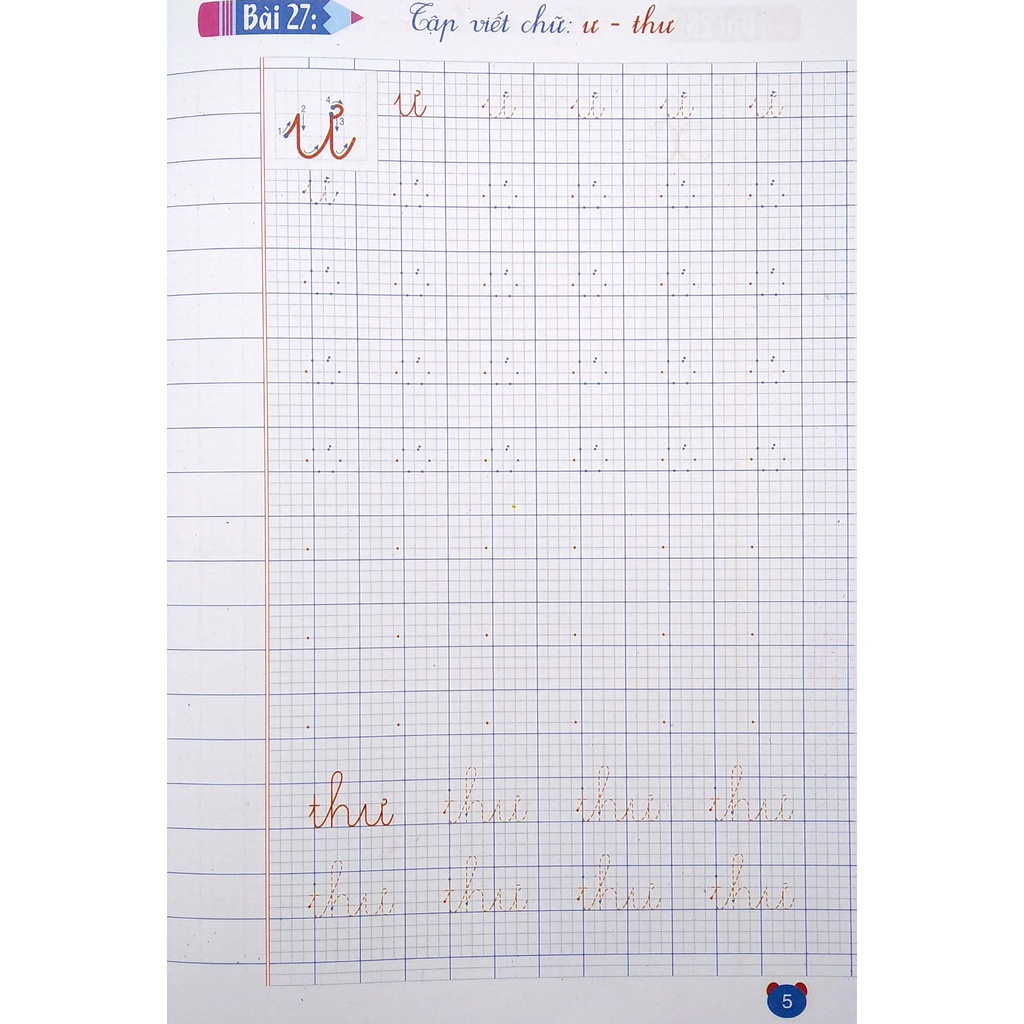 Bài 27: Tập viết chữ: ư - thư
4
2
1 3
ư ư ư ư ư ư
ư
thư thư thư thư
thư thư thư thư
5